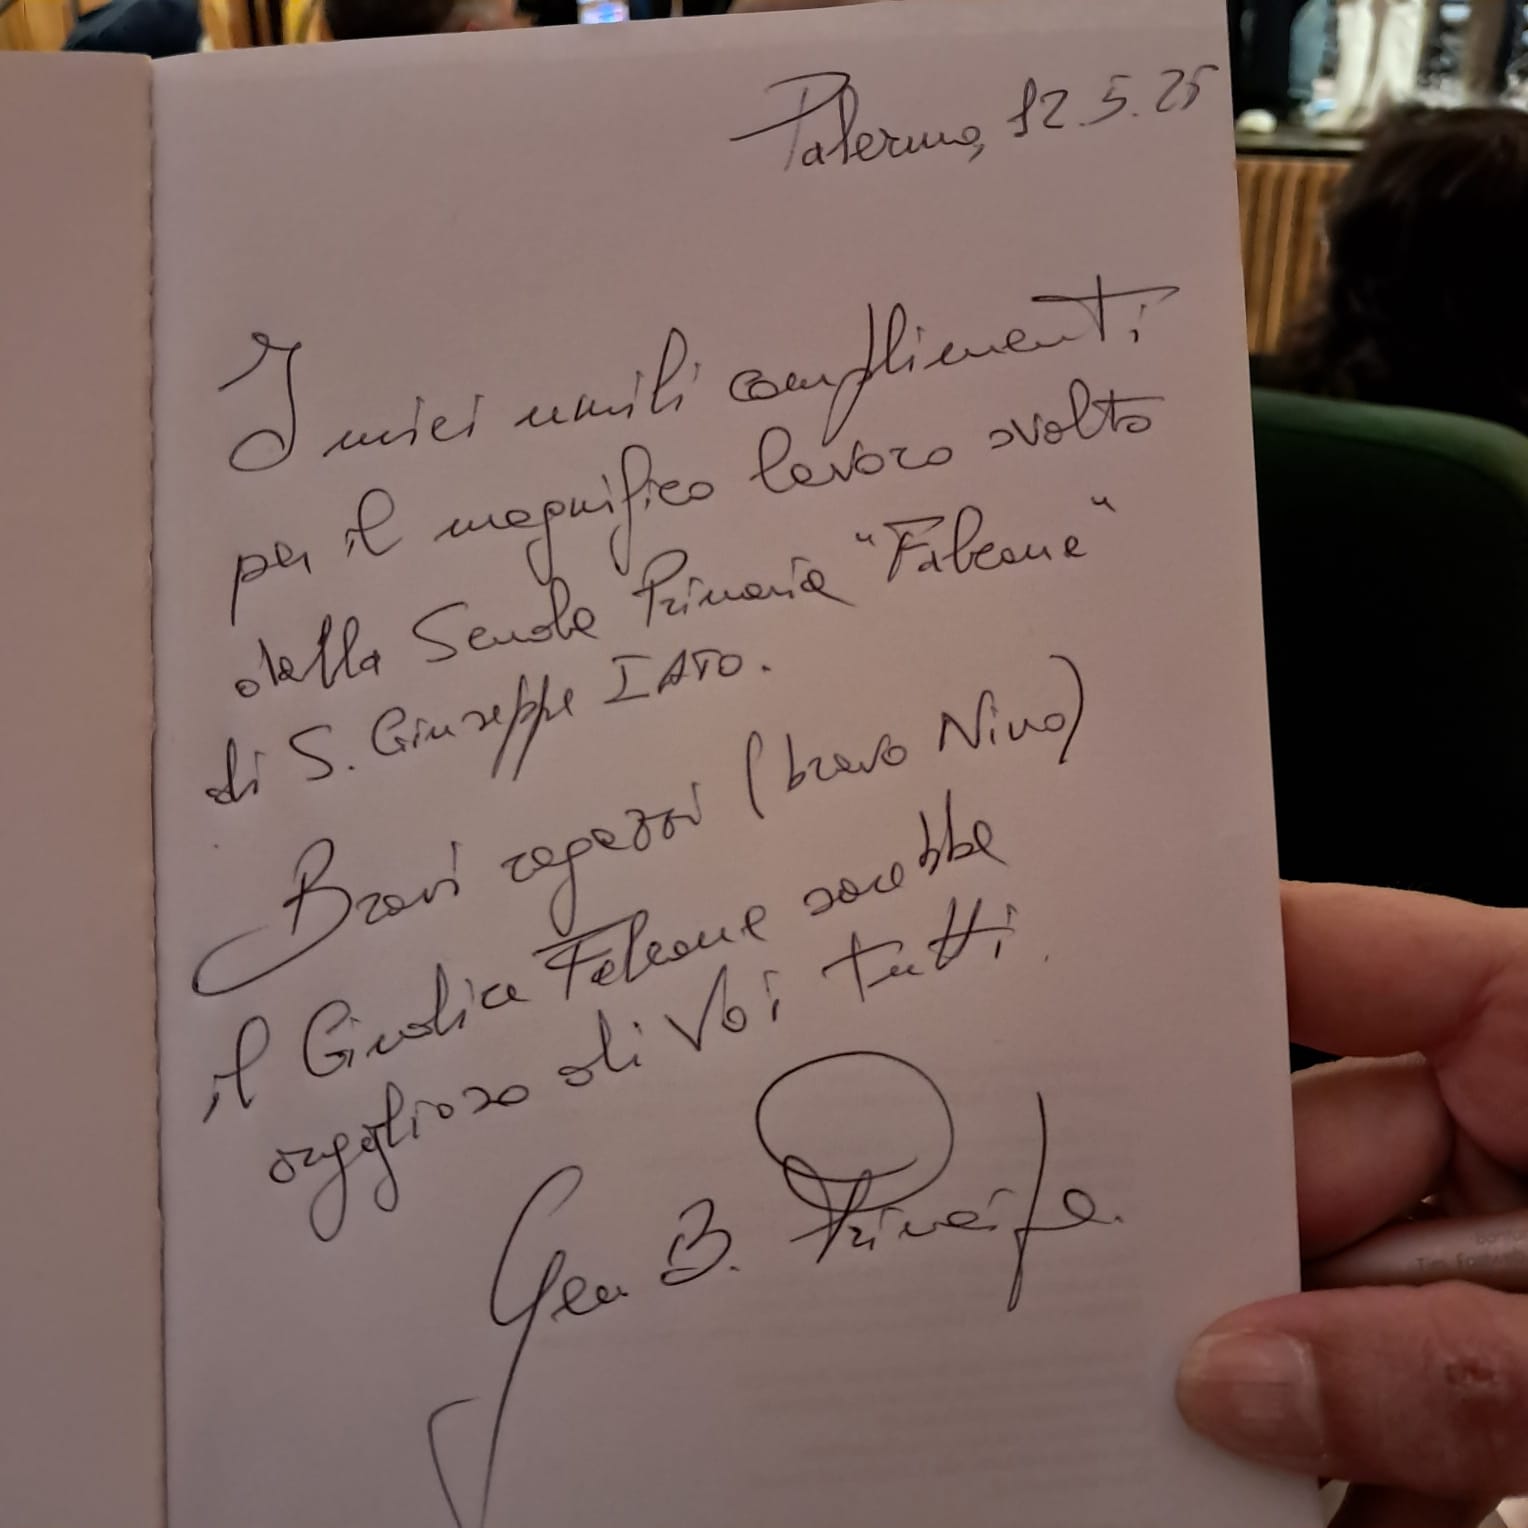 Palermo, 12.5.25
I miei umili complimenti
per il magnifico lavoro svolto
dalla Scuola Primaria "Falcone"
di S. Giuseppe IATO.
Bravi ragazzi (bravo Nino)
il Giudice Falcone sarebbe
orgoglioso di Voi tutti.
Gen B.